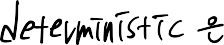 deterministic 은